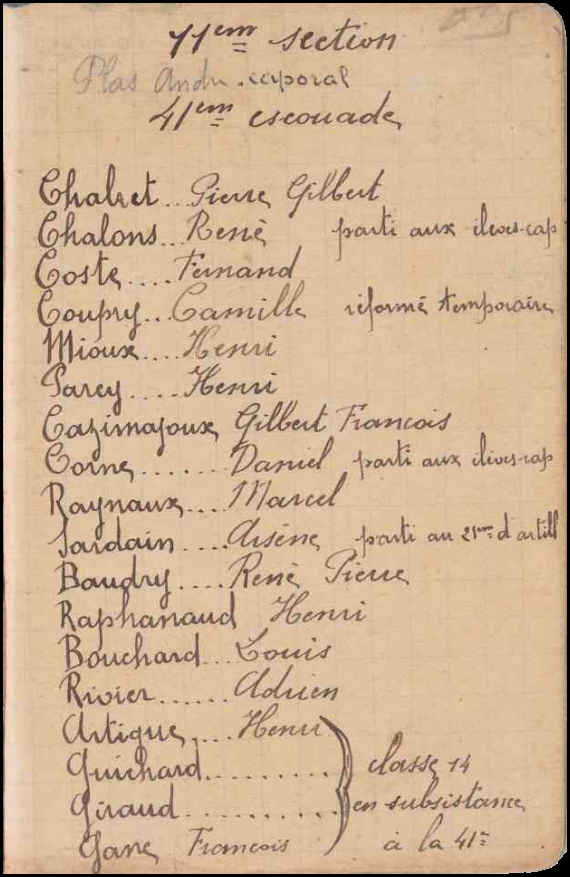 11em section
Plas André caporal
41em escouade
Chabret... Pierre Gilbert
Chalons... René parti aux élèves-cap
Coste.... Fernand
Coupry... Camille réformé temporaire
Mioux.... Henri
Parey.... Henri
Cazimajoux Gilbert François
Corne....... Daniel parti aux élèves-cap
Raynaux.... Marcel
Jardain.... Arsène parti au 21em d'artill
Baudry.... René Pierre
Raphanaud Henri
Bouchard... Louis
Rivier...... Adrien
Artigue.... Henri
Guichard.......... classe 14
Giraud........... en subsistance
Gane François à la 41e